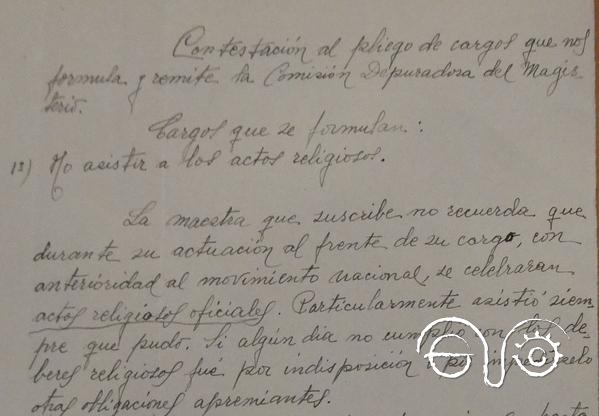 Contestación al pliego de cargos que nos
formula y remite la Comisión Depuradora del Magis-
terio.
Cargos que se formulan:
1º) No asistir a los actos religiosos.
La maestra que suscribe no recuerda que
durante su actuación al frente de su cargo, con
anterioridad al movimiento nacional, se celebraran
actos religiosos oficiales. Particularmente asistió siem-
pre que pudo. Si algún día no cumplió con los de-
beres religiosos fué por indisposición o por impedírselo
otras obligaciones apremiantes.